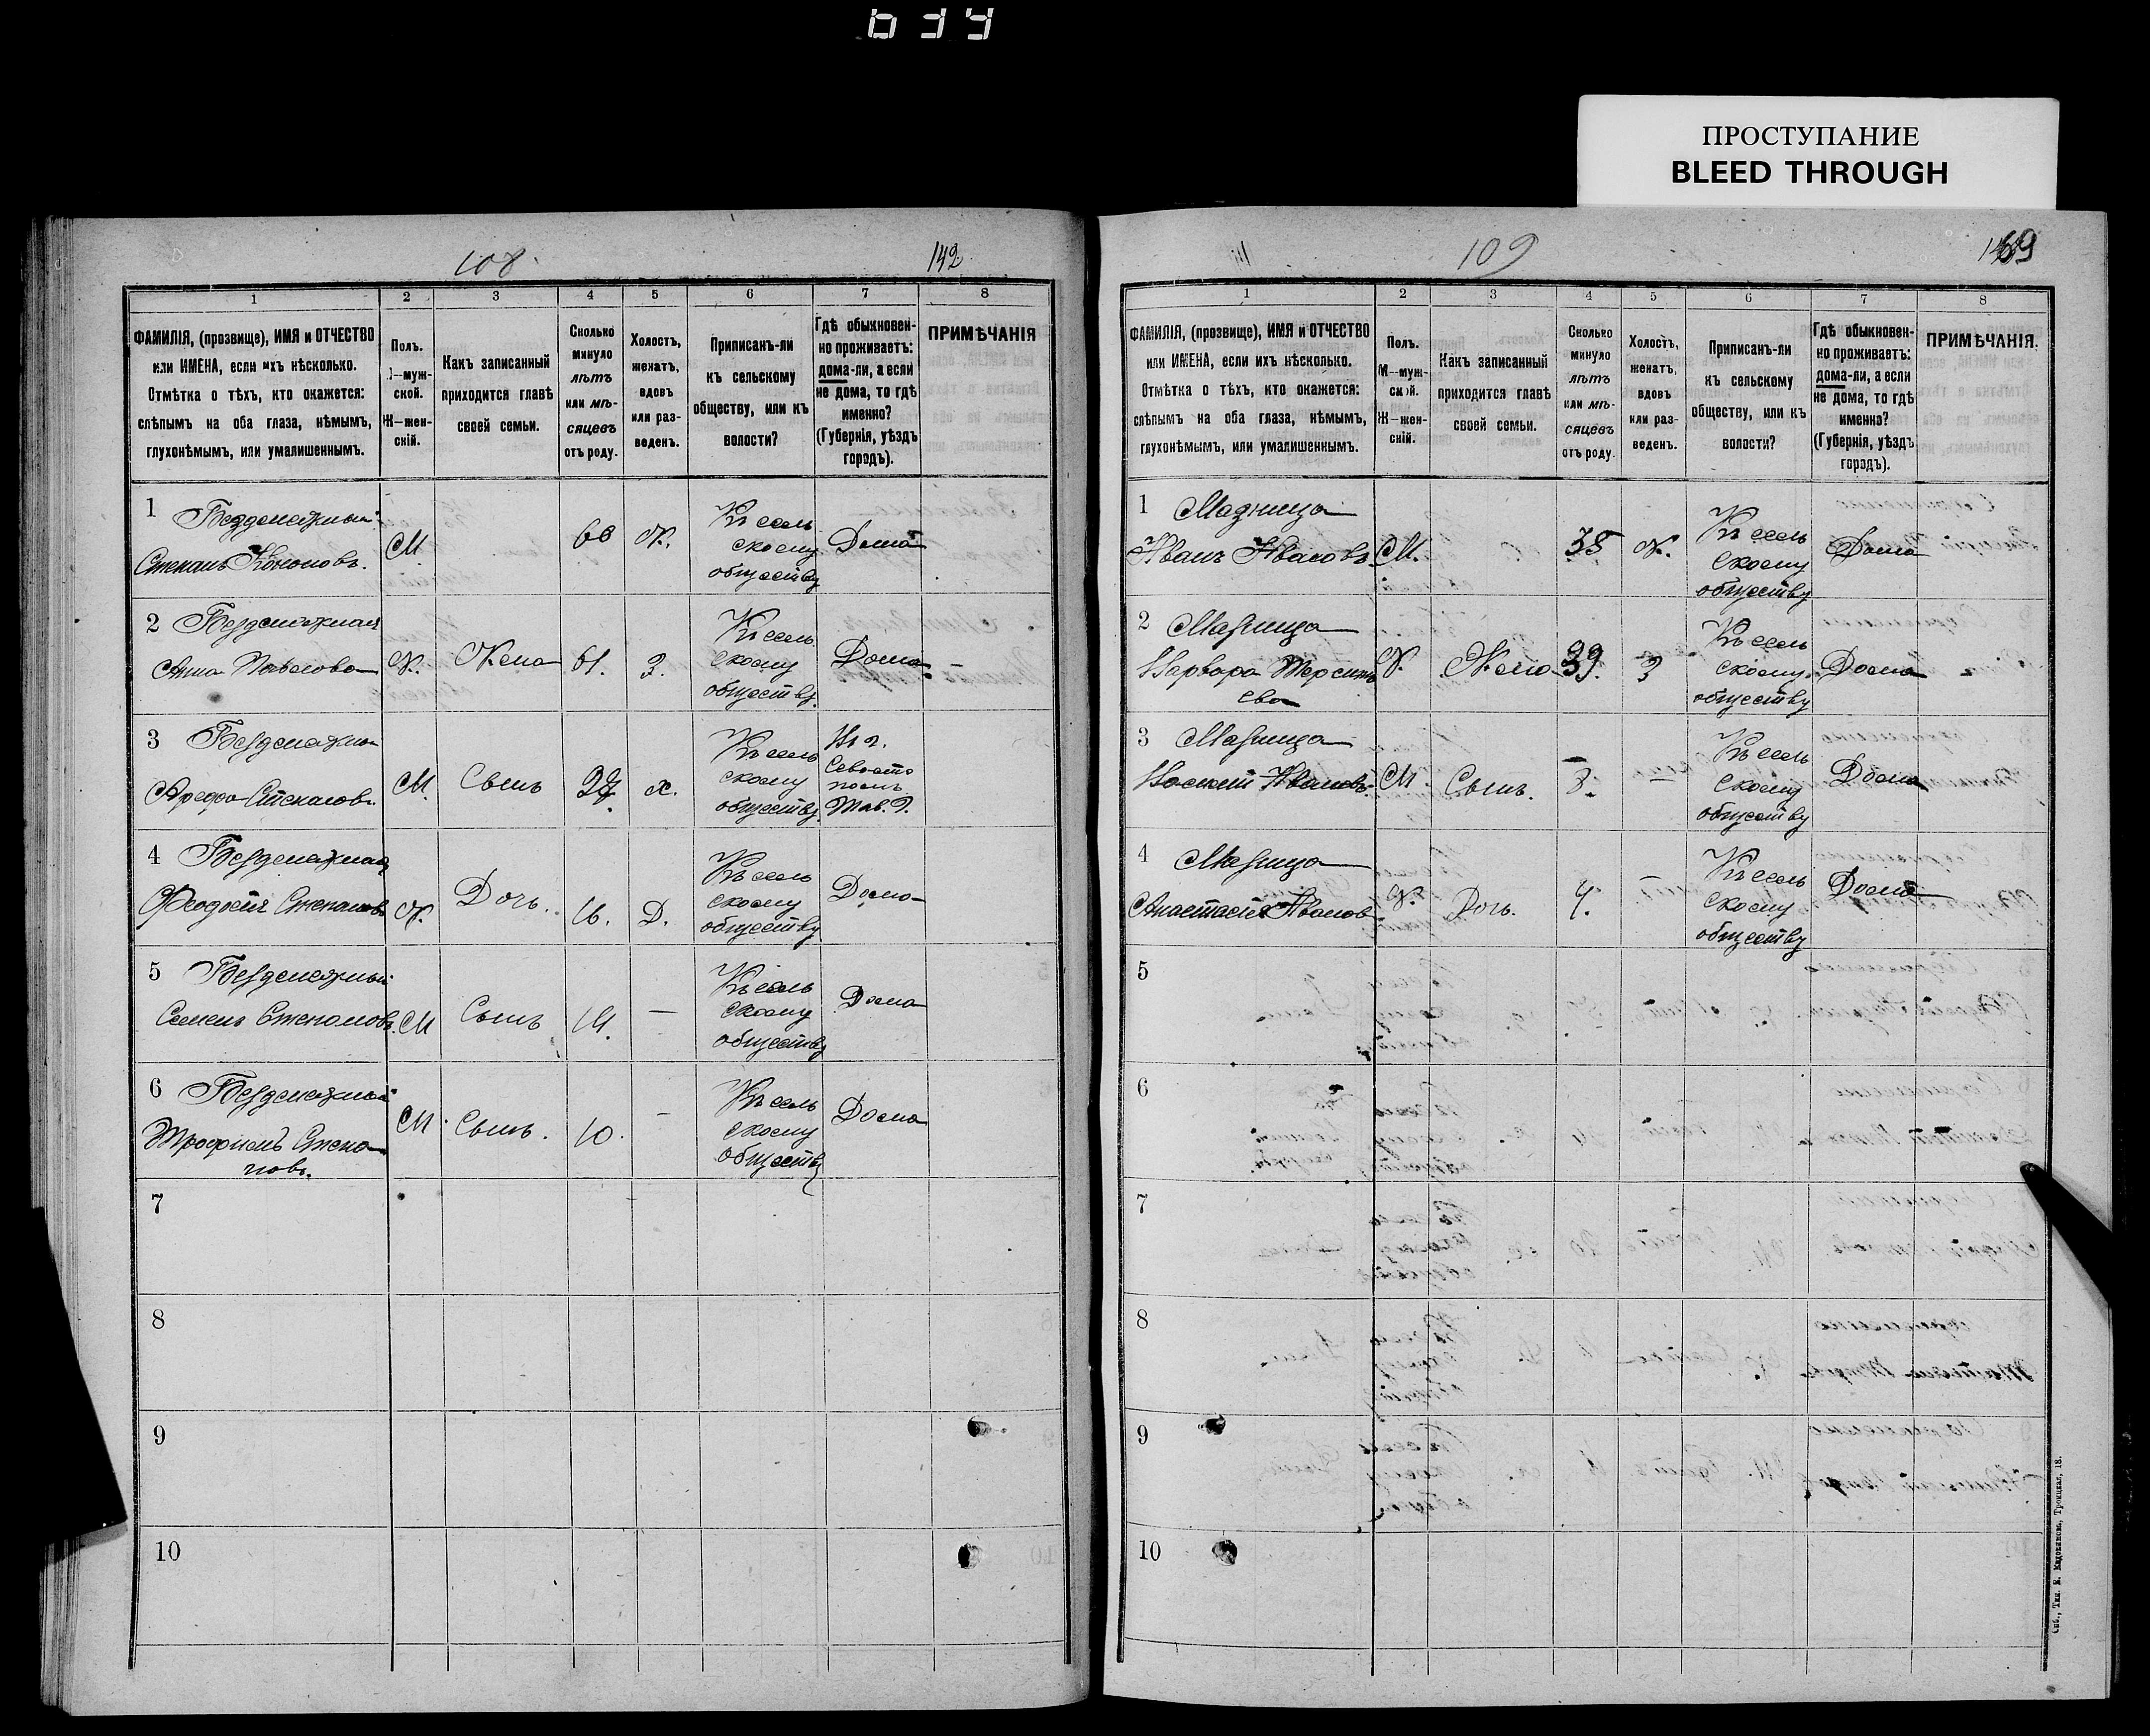 ПРОСТУПАНИЕ
BLEED THROUGH
108
142
1 2 3 4 5 6 7 8
ФАМИЛІЯ, (прозвище), ИМЯ и ОТЧЕСТВО
или ИМЕНА, если ихъ нѣсколько.
Отмѣтка о тѣхъ, кто окажется:
слѣпымъ на оба глаза, нѣмымъ,
глухонѣмымъ, или умалишеннымъ.
Полъ.
М—муж-
ской.
Ж—жен-
скій.
Какъ записанный
приходится главѣ
своей семьи.
Сколько
минуло
лѣтъ
или мѣ-
сяцевъ
отъ роду.
Холостъ,
женатъ,
вдовъ
или раз-
веденъ.
Приписанъ-ли
къ сельскому
обществу, или къ
волости?
Гдѣ обыкновен-
но проживаетъ:
дома-ли, а если
не дома, то гдѣ
именно?
(Губернія, уѣздъ
городъ).
ПРИМѢЧАНІЯ
1 Безденежный
Степанъ Кононовъ.
М
60
Ж.
Къ сель
скому
обществу
Дома
2 Безденежная
Анна Павлова
Ж.
Жена
61.
З.
Къ сель
скому
обществу
Дома
3
Степановъ
М.
Сынъ
х.
Къ сель
скому
обществу
Въ г.
Севасто
полѣ
Тав. Г.
4 Безденежная
Феодосія Степанов
Ж.
Дочь.
16.
Д.
Къ сель
скому
обществу
Дома
5 Безденежный
Семенъ Степановъ
М
Сынъ
14.
—
Къ сель
скому
обществу
Дома
6 Безденежный
Трофимъ Степа
новъ.
М.
Сынъ.
10.
—
Къ сель
скому
обществу
Дома
7
8
9
10
109
1 2 3 4 5 6 7 8
ФАМИЛІЯ, (прозвище), ИМЯ и ОТЧЕСТВО
или ИМЕНА, если ихъ нѣсколько.
Отмѣтка о тѣхъ, кто окажется:
слѣпымъ на оба глаза, нѣмымъ,
глухонѣмымъ, или умалишеннымъ.
Полъ.
М—муж-
ской.
Ж—жен-
скій.
Какъ записанный
приходится главѣ
своей семьи.
Сколько
минуло
лѣтъ
или мѣ-
сяцевъ
отъ роду.
Холостъ,
женатъ,
вдовъ
или раз-
веденъ.
Приписанъ-ли
къ сельскому
обществу, или къ
волости?
Гдѣ обыкновен-
но проживаетъ:
дома-ли, а если
не дома, то гдѣ
именно?
(Губернія, уѣздъ
городъ).
ПРИМѢЧАНІЯ.
1 Мазница
Иванъ Ивановъ
М.
38
Ж.
Къ сель
скому
обществу
Дома
2 Мазница
Варвара
ева
Ж.
Жена
39.
З
Къ сель
скому
обществу
Дома
3 Мазница
Василій Ивановъ
М.
Сынъ.
8.
—
Къ сель
скому
обществу
Дома
4 Мазница
Анастасія Иванов
Ж.
Дочь.
4.
—
Къ сель
скому
обществу
Дома
5
6
7
8
9
10